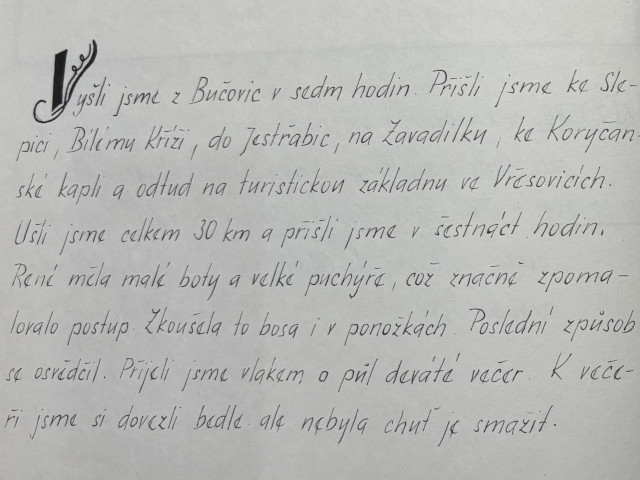 Vyšli jsme z Bučovic v sedm hodin. Přišli jsme ke Sle-
pici, Bílému Kříži, do Jestřabic, na Zavadilku, ke Koryčan-
ské kapli a odtud na turistickou základnu ve Vřesovicích.
Ušli jsme celkem 30 km a přišli jsme v šestnáct hodin.
René měla malé boty a velké puchýře, což značně zpoma-
loralo postup. Zkoušela to bosa i v ponožkách. Poslední způsob
se osvědčil. Přijeli jsme vlakem o půl deváté večer. K veče-
ři jsme si dovezli bedle ale nebyla chuť je smažit.